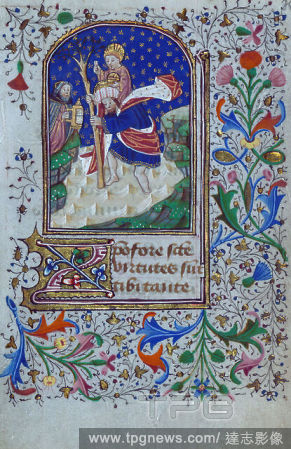 Xpofore scte
virtutes sut
tibi tante
TPG
www.tpgnews.com/ 達志影像